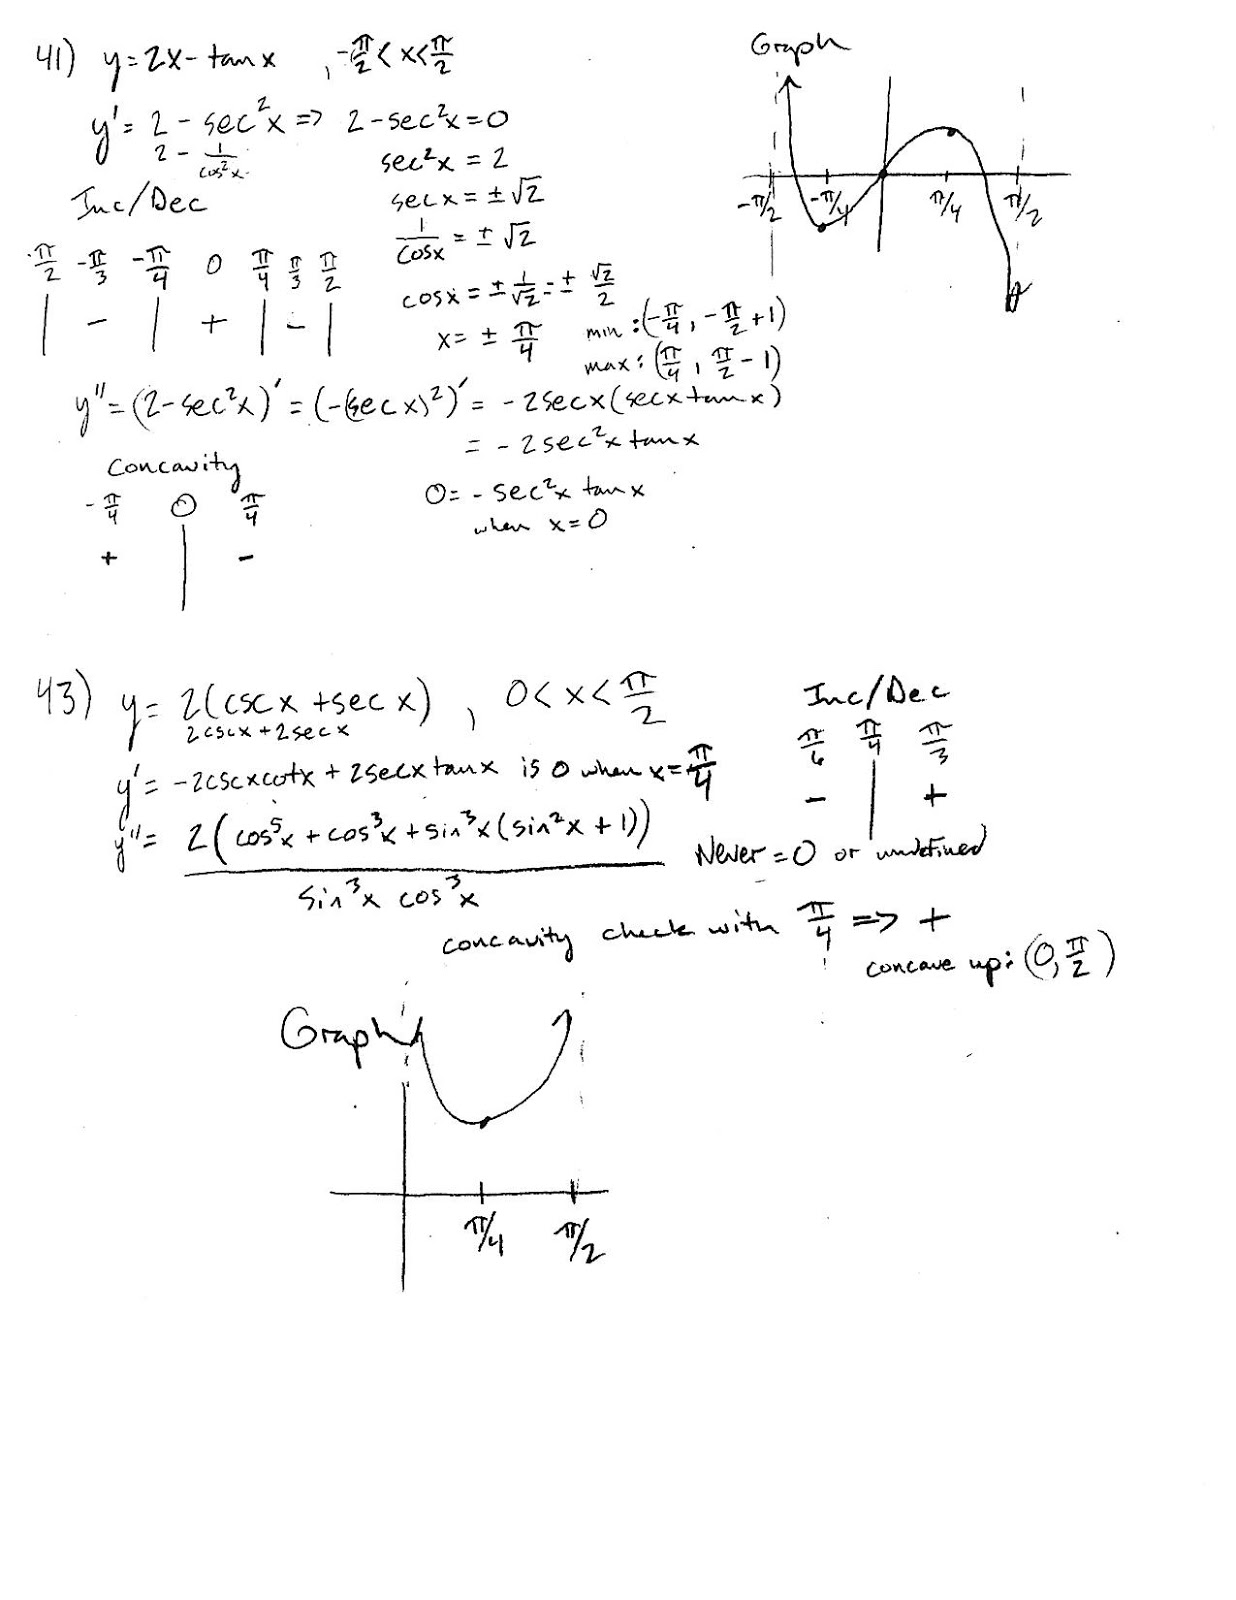 41) y = 2x - tan x , -π/2 < x < π/2
Graph
y' = 2 - sec²x => 2 - sec²x = 0
2 - 1/cos²x
sec²x = 2
Inc/Dec
sec x = ± √2
1/cosx = ± √2
-π/2 -π/3 -π/4 0 π/4 π/3 π/2
- + -
cosx = ± 1/√2 = ± √2/2
x = ± π/4
min : (-π/4, -π/2 + 1)
max : (π/4, π/2 - 1)
-π/2 -π/4 π/4 π/2
y'' = (2 - sec²x)' = (-(sec x)²)' = -2 sec x (sec x tan x)
= -2 sec²x tan x
Concavity
-π/4 0 π/4
+ -
0 = - sec²x tan x
when x = 0
43) y = 2(csc x + sec x) , 0 < x < π/2
2cscx + 2secx
Inc/Dec
π/6 π/4 π/3
- +
y' = -2cscxcotx + 2secxtanx is 0 when x = π/4
y'' = 2(cos⁵x + cos³x + sin³x(sin²x + 1)) / sin³x cos³x
Never = 0 or undefined
concavity check with π/4 => +
concave up: (0, π/2)
Graph
π/4 π/2